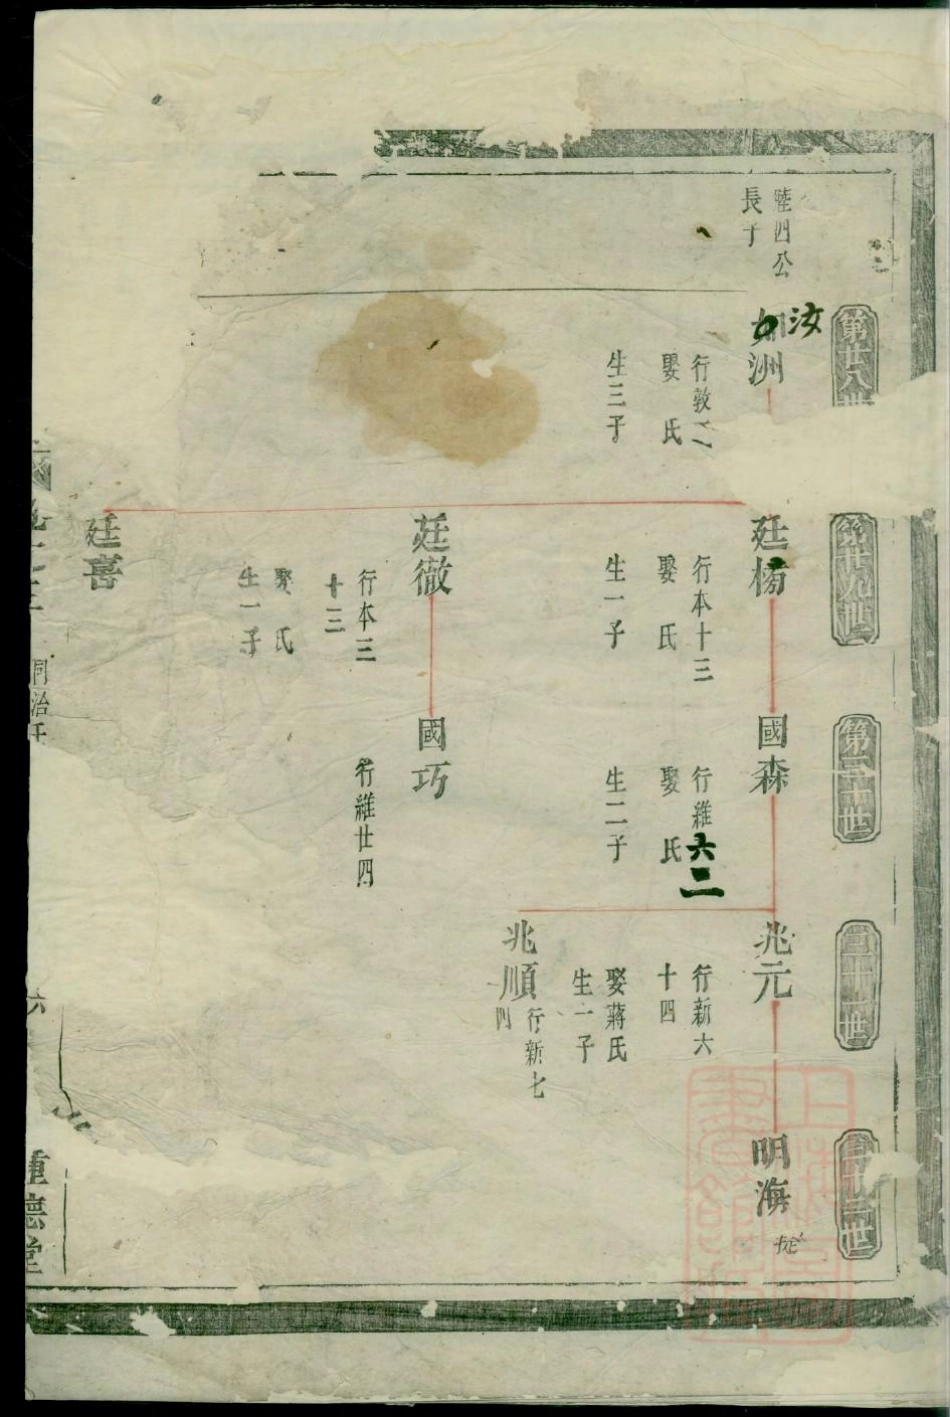 陸四公
長子
第廿八世
第廿九世
第三十世
三十一世
三十二世
汝
洲
行敦二
娶 氏
生三子
廷楊
行本十三
娶 氏
生一子
國森
行維六二
娶 氏
生二子
兆元
行新六
十四
娶蔣氏
生一子
明海
兆順
行新七
四
廷徹
行本三
十三
娶 氏
生一子
國巧
行維廿四
廷喜
同治壬
六
種德堂